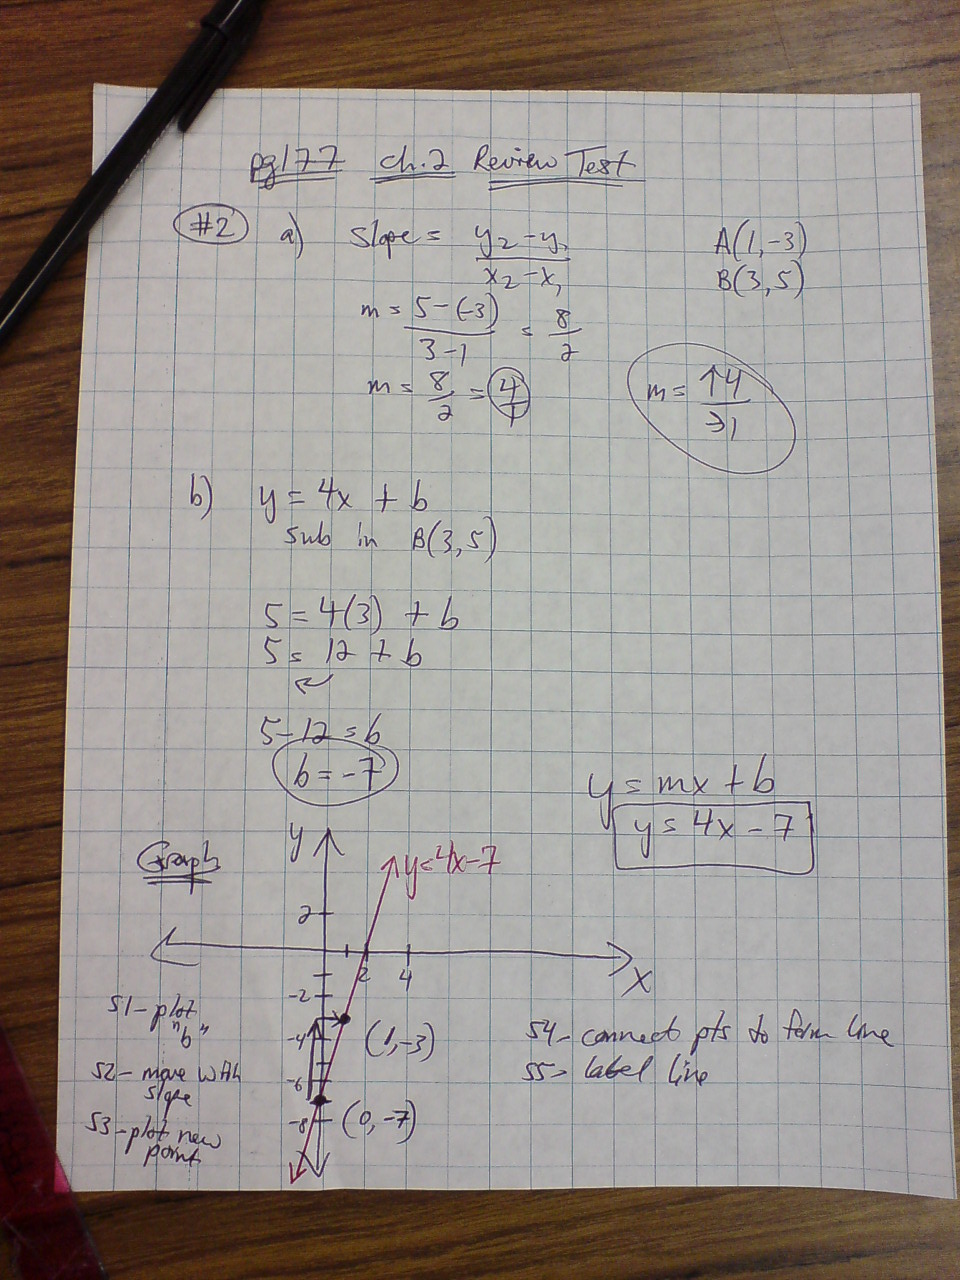 pg177 Ch.2 Review Test
#2 a) Slope = y₂-y₁ / x₂-x₁
A(1,-3)
B(3,5)
m = 5-(-3) / 3-1 = 8/2
m = 8/2 = 4/1
m = ↑4 / →1
b) y = 4x + b
sub in B(3,5)
5 = 4(3) + b
5 = 12 + b
5-12 = b
b = -7
y = mx + b
y = 4x - 7
Graph
y
y=4x-7
2
2 4
x
-2
-4
-6
-8
(1,-3)
(0,-7)
S1- plot
"b"
S2- move with
slope
S3- plot new
point
S4- connect pts to form line
S5- label line